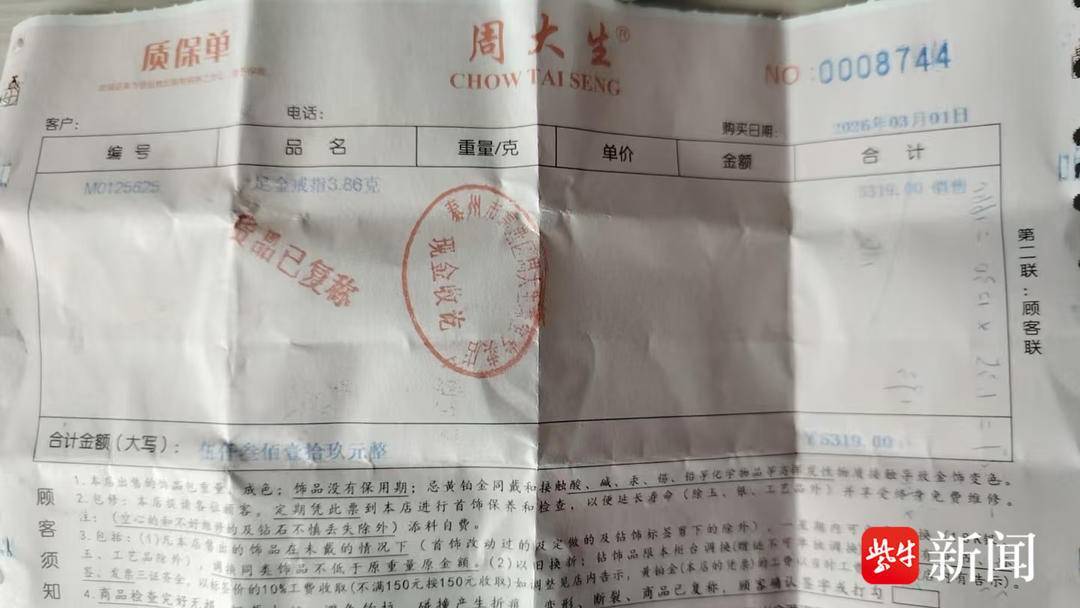 质保单
周大生®
CHOW TAI SENG
NO:0008744
客户:
电话:
购买日期:
2026年03月01日
编号 品名 重量/克 单价 金额 合计
M0125625 足金戒指3.86克 5319.00 销售
货品已复称
现金收讫
第二联:顾客联
合计金额(大写): 伍仟叁佰壹拾玖元整 ¥5319.00
顾客须知
1.本店出售的饰品包重量、成色;饰品没有保用期;忌黄铂金同戴和接触酸、碱、汞、
2.包修:本店提请各位顾客,定期凭此票到本店进行首饰保养和检查,以便延长寿命(除玉、银、工艺品外)并享受终身免费维修。
注:(空心的和不好维修的及钻石不慎丢失除外)添料自费。
3.包括:(1)凡本店售出的饰品在未戴的情况下(首饰改动过的及定做的及钻饰标签剪下的除外),一星期内可
五、工艺品除外)调换同类饰品不低于原重量原金额。(2)以旧换新:钻饰品限本柜台调换
签、发票三证齐全,以标签价的10%工费收取(不满150元按150元收取)如调整见店内告示,
4.商品检查完好无损 变形、断裂、商品已复称,顾客确认签字或打勾
紫牛新闻